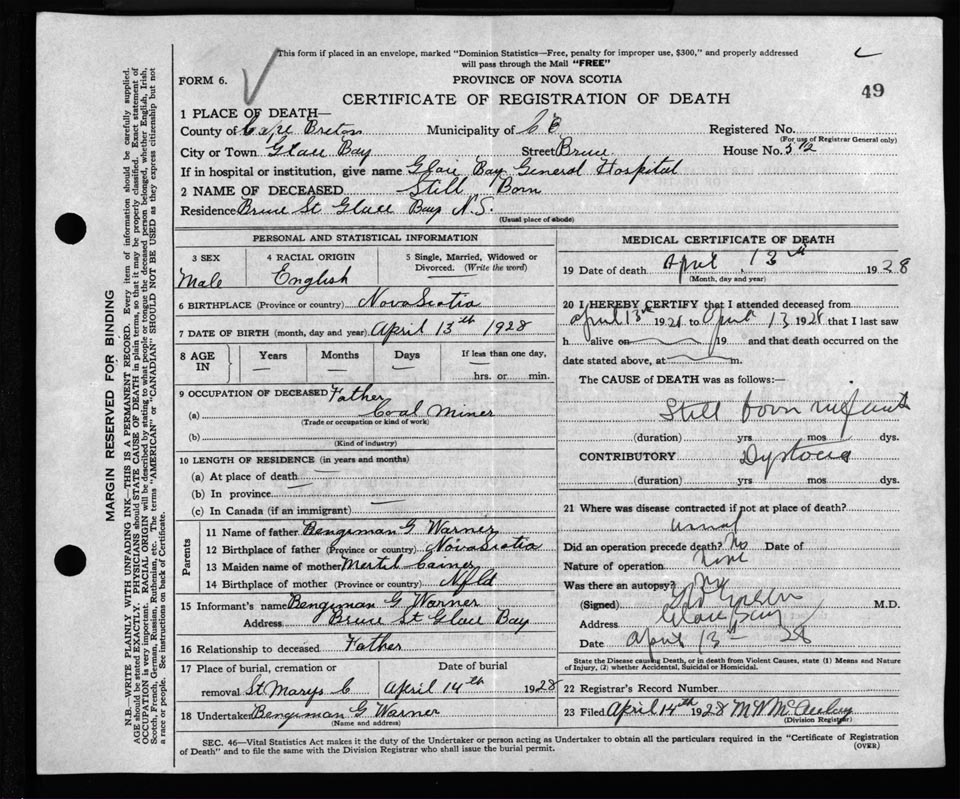 This form if placed in an envelope, marked "Dominion Statistics—Free, penalty for improper use, $300," and properly addressed
will pass through the Mail "FREE"
FORM 6.
PROVINCE OF NOVA SCOTIA
49
CERTIFICATE OF REGISTRATION OF DEATH
1 PLACE OF DEATH—
County of Cape Breton Municipality of C B Registered No.
(For use of Registrar General only)
City or Town Glace Bay Street Bruce House No. 5 1/2
If in hospital or institution, give name Glace Bay General Hospital
2 NAME OF DECEASED Still Born
Residence Bruce St Glace Bay N.S.
(Usual place of abode)
PERSONAL AND STATISTICAL INFORMATION
3 SEX 4 RACIAL ORIGIN 5 Single, Married, Widowed or Divorced. (Write the word)
Male English
6 BIRTHPLACE (Province or country) Nova Scotia
7 DATE OF BIRTH (month, day and year) April 13th 1928
8 AGE IN Years Months Days If less than one day,
— — — — hrs. or min.
9 OCCUPATION OF DECEASED Father
(a) Coal Miner
(Trade or occupation or kind of work)
(b)
(Kind of industry)
10 LENGTH OF RESIDENCE (in years and months)
(a) At place of death —
(b) In province —
(c) In Canada (if an immigrant) —
Parents
11 Name of father Bengiman G Warner
12 Birthplace of father (Province or country) Nova Scotia
13 Maiden name of mother Mertil
14 Birthplace of mother (Province or country) Nfld
15 Informant's name Bengiman G Warner
Address Bruce St Glace Bay
16 Relationship to deceased Father
17 Place of burial, cremation or Date of burial
removal St Marys C April 14th 1928
18 Undertaker Bengiman G Warner
(Name and Address)
MEDICAL CERTIFICATE OF DEATH
19 Date of death April 13th 1928
(Month, day and year)
20 I HEREBY CERTIFY that I attended deceased from
April 13th 1928 to April 13 1928 that I last saw
h alive on 19 and that death occurred on the
date stated above, at m.
The CAUSE of DEATH was as follows:—
Still born infant
(duration) yrs. mos. dys.
CONTRIBUTORY Dystocia
(duration) yrs. mos. dys.
21 Where was disease contracted if not at place of death?
Did an operation precede death? No Date of
Nature of operation None
Was there an autopsy? No
(Signed) M.D.
Address Glace Bay
Date April 13th 28
State the Disease causing Death, or in death from Violent Causes, state (1) Means and Nature
of Injury, (2) whether Accidental, Suicidal or Homicidal.
22 Registrar's Record Number
23 Filed April 14th 1928
(Division Registrar)
SEC. 46—Vital Statistics Act makes it the duty of the Undertaker or person acting as Undertaker to obtain all the particulars required in the "Certificate of Registration
of Death" and to file the same with the Division Registrar who shall issue the burial permit.
(OVER)
MARGIN RESERVED FOR BINDING
N.B.—WRITE PLAINLY WITH UNFADING INK—THIS IS A PERMANENT RECORD. Every item of information should be carefully supplied.
AGE should be stated EXACTLY. PHYSICIANS should STATE CAUSE OF DEATH in plain terms, so that it may be properly classified. Exact statement of
OCCUPATION is very important. RACIAL ORIGIN will be described by stating to what people or tongue the deceased person belonged, whether English, Irish,
Scotch, French, German, Russian, Ruthenian, etc. The terms "AMERICAN" or "CANADIAN" SHOULD NOT BE USED as they express citizenship but not
a race or people. See instructions on back of Certificate.